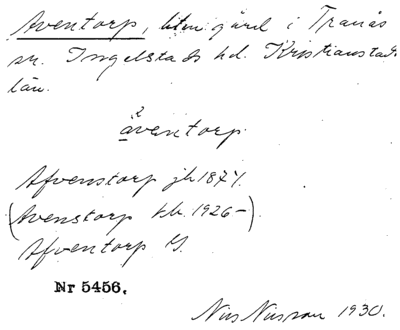 Aventorp, liten gård i Tranås
sn. Ingelstads hd. Kristianstads
län.
2
åventorp
Afvenstorp jb 1877.
(Avenstorp tlb. 1926-).
Afventorp G.
Nr 5456.
Nils Nilsson 1930.